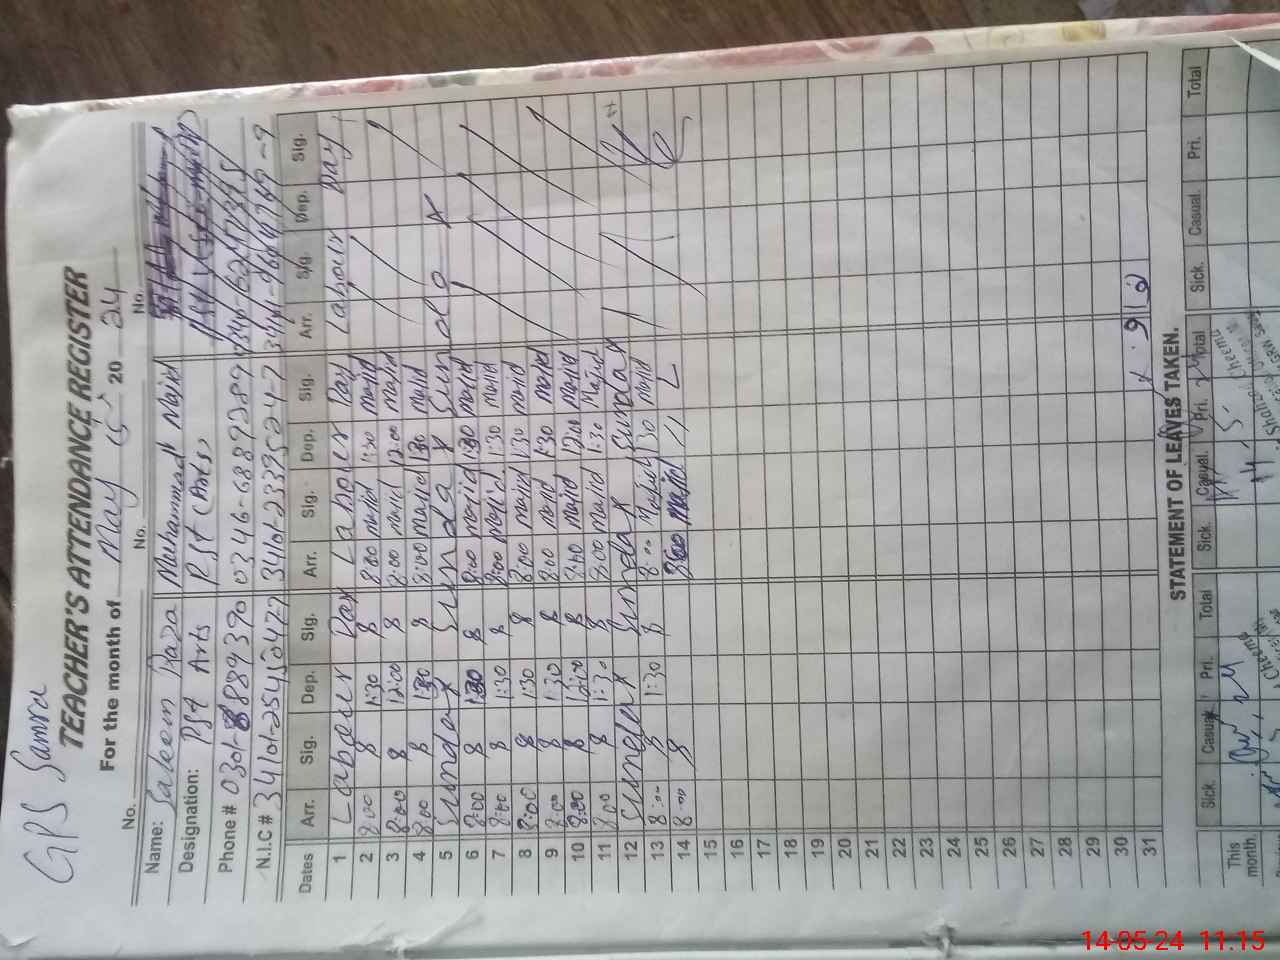 GPS Samra
TEACHER'S ATTENDANCE REGISTER
For the month of May 5 20 24
No. No. No.
Name: Saleem Raza Muhammad Majid
Designation: Pst Arts Pst (Arts)
Phone # 0301-8889390 0346-6889289
N.I.C # 34101-2545047-7 34101-2339524-7
Dates Arr. Sig. Dep. Sig. Arr. Sig. Dep. Sig. Arr. Sig. Dep. Sig.
1 Labour Day Labour Day Labour Day
2 8:00 8 1:30 8 8:00 majid 1:30 majid
3 8:00 8 12:00 8 8:00 majid 12:00 majid
4 8:00 8 1:30 8 8:00 majid 1:30 majid
5 Sunday Sunday Sunday
6 8:00 8 1:30 8 8:00 majid 1:30 majid
7 8:00 8 1:30 8 8:00 majid 1:30 majid
8 8:00 8 1:30 8 8:00 majid 1:30 majid
9 8:00 8 1:30 8 8:00 majid 1:30 majid
10 8:00 8 12:00 8 8:00 majid 12:00 majid
11 8:00 8 1:30 8 8:00 majid 1:30 Majid
12 Sunday Sunday Sunday
13 8:00 8 1:30 8 8:00 Majid 1:30 majid
14 8:00 8 8:00 majid
15
16
17
18
19
20
21
22
23
24
25
26
27
28
29
30
31
STATEMENT OF LEAVES TAKEN.
Sick. Casual. Pri. Total Sick. Casual. Pri. Total Sick. Casual. Pri. Total
This month.
14-05-24 11:15